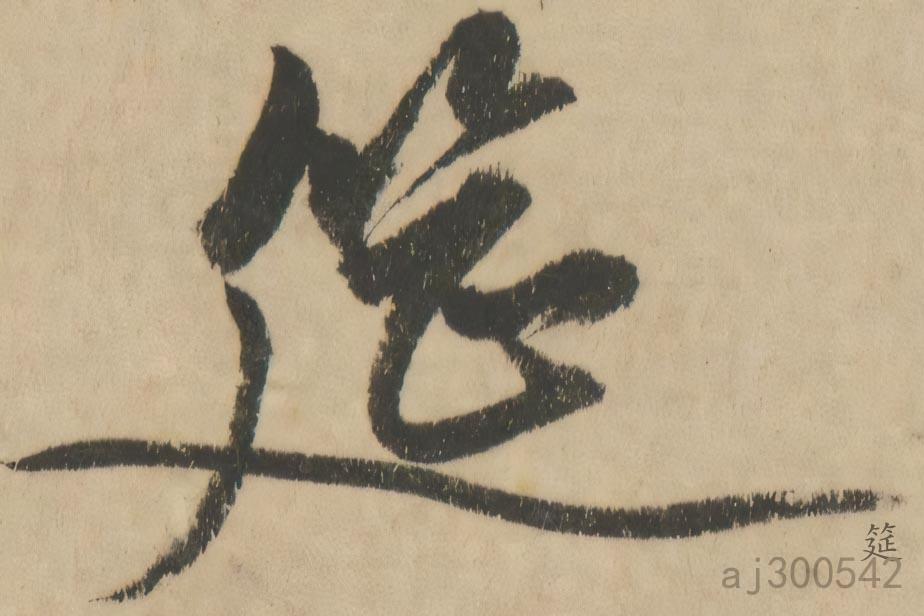 筵
筵
aj300542